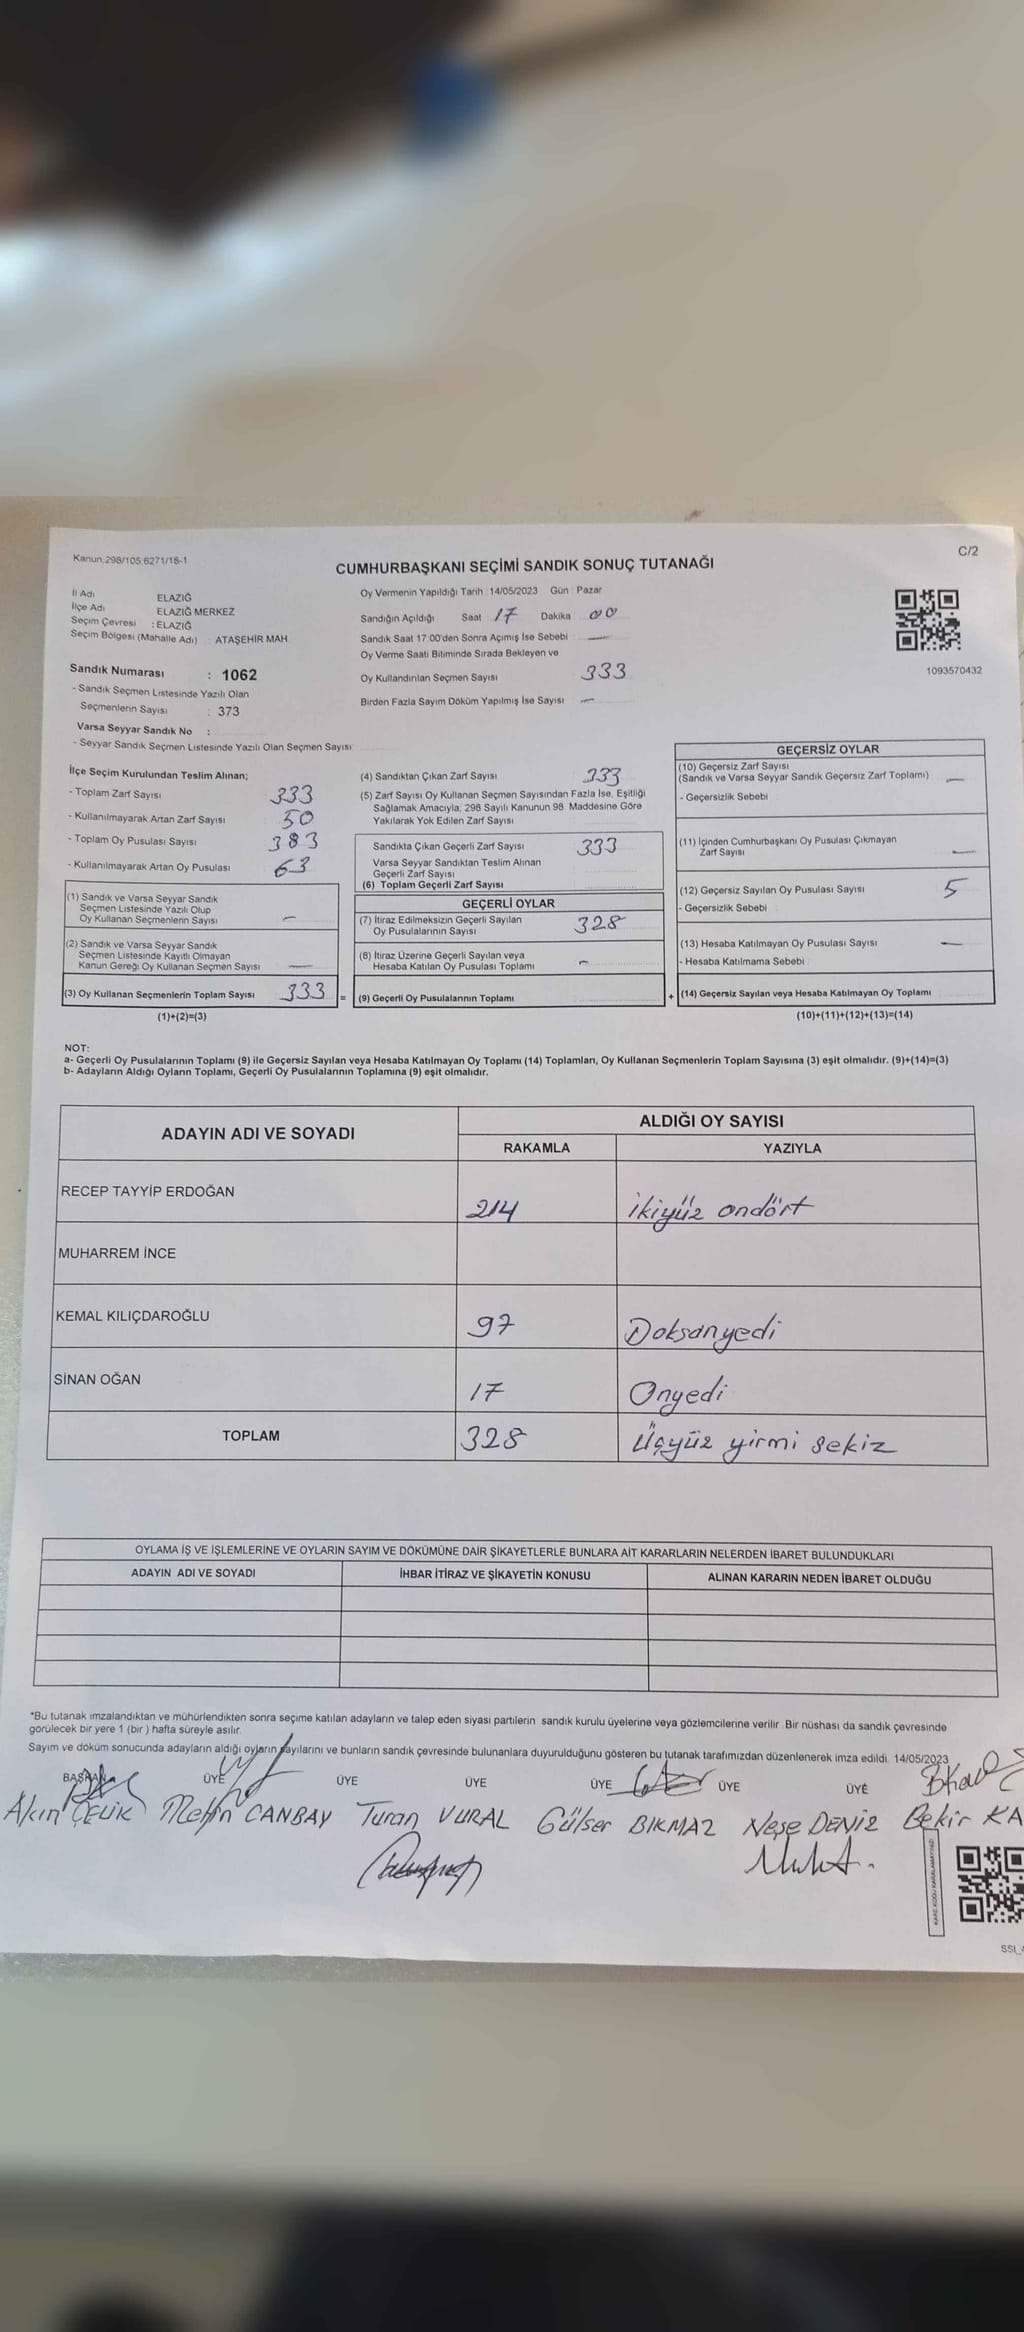 Kanun.298/105.6271/16-1
C/2
CUMHURBAŞKANI SEÇİMİ SANDIK SONUÇ TUTANAĞI
İl Adı ELAZIĞ
İlçe Adı ELAZIĞ MERKEZ
Seçim Çevresi : ELAZIĞ
Seçim Bölgesi (Mahalle Adı) ATAŞEHİR MAH
Sandık Numarası : 1062
- Sandık Seçmen Listesinde Yazılı Olan
Seçmenlerin Sayısı : 373
Varsa Seyyar Sandık No :
- Seyyar Sandık Seçmen Listesinde Yazılı Olan Seçmen Sayısı
Oy Vermenin Yapıldığı Tarih 14/05/2023 Gün Pazar
Sandığın Açıldığı Saat 17 Dakika 00
Sandık Saat 17:00'den Sonra Açımış İse Sebebi —
Oy Verme Saati Bitiminde Sırada Bekleyen ve
Oy Kullandırılan Seçmen Sayısı 333
Birden Fazla Sayım Döküm Yapılmış İse Sayısı —
1093570432
İlçe Seçim Kurulundan Teslim Alınan;
- Toplam Zarf Sayısı 333
- Kullanılmayarak Artan Zarf Sayısı 50
- Toplam Oy Pusulası Sayısı 383
- Kullanılmayarak Artan Oy Pusulası 63
(1) Sandık ve Varsa Seyyar Sandık
Seçmen Listesinde Yazılı Olup
Oy Kullanan Seçmenlerin Sayısı —
(2) Sandık ve Varsa Seyyar Sandık
Seçmen Listesinde Kayıtlı Olmayan
Kanun Gereği Oy Kullanan Seçmen Sayısı —
(3) Oy Kullanan Seçmenlerin Toplam Sayısı 333 =
(1)+(2)=(3)
(4) Sandıktan Çıkan Zarf Sayısı 333
(5) Zarf Sayısı Oy Kullanan Seçmen Sayısından Fazla İse, Eşitliği
Sağlamak Amacıyla; 298 Sayılı Kanunun 98. Maddesine Göre
Yakılarak Yok Edilen Zarf Sayısı
Sandıkta Çıkan Geçerli Zarf Sayısı 333
Varsa Seyyar Sandıktan Teslim Alınan
Geçerli Zarf Sayısı
(6) Toplam Geçerli Zarf Sayısı
GEÇERLİ OYLAR
(7) İtiraz Edilmeksizin Geçerli Sayılan
Oy Pusulalarının Sayısı 328
(8) İtiraz Üzerine Geçerli Sayılan veya
Hesaba Katılan Oy Pusulası Toplamı —
(9) Geçerli Oy Pusulalarının Toplamı +
GEÇERSİZ OYLAR
(10) Geçersiz Zarf Sayısı
(Sandık ve Varsa Seyyar Sandık Geçersiz Zarf Toplamı) —
- Geçersizlik Sebebi
(11) İçinden Cumhurbaşkanı Oy Pusulası Çıkmayan
Zarf Sayısı —
(12) Geçersiz Sayılan Oy Pusulası Sayısı 5
- Geçersizlik Sebebi
(13) Hesaba Katılmayan Oy Pusulası Sayısı —
- Hesaba Katılmama Sebebi
(14) Geçersiz Sayılan veya Hesaba Katılmayan Oy Toplamı
(10)+(11)+(12)+(13)=(14)
NOT:
a- Geçerli Oy Pusulalarının Toplamı (9) ile Geçersiz Sayılan veya Hesaba Katılmayan Oy Toplamı (14) Toplamları, Oy Kullanan Seçmenlerin Toplam Sayısına (3) eşit olmalıdır. (9)+(14)=(3)
b- Adayların Aldığı Oyların Toplamı, Geçerli Oy Pusulalarının Toplamına (9) eşit olmalıdır.
ADAYIN ADI VE SOYADI ALDIĞI OY SAYISI
RAKAMLA YAZIYLA
RECEP TAYYİP ERDOĞAN 214 ikiyüz ondört
MUHARREM İNCE
KEMAL KILIÇDAROĞLU 97 Doksanyedi
SİNAN OĞAN 17 Onyedi
TOPLAM 328 Üçyüz yirmi sekiz
OYLAMA İŞ VE İŞLEMLERİNE VE OYLARIN SAYIM VE DÖKÜMÜNE DAİR ŞİKAYETLERLE BUNLARA AİT KARARLARIN NELERDEN İBARET BULUNDUKLARI
ADAYIN ADI VE SOYADI İHBAR İTİRAZ VE ŞİKAYETİN KONUSU ALINAN KARARIN NEDEN İBARET OLDUĞU
*Bu tutanak imzalandıktan ve mühürlendikten sonra seçime katılan adayların ve talep eden siyasi partilerin sandık kurulu üyelerine veya gözlemcilerine verilir. Bir nüshası da sandık çevresinde
görülecek bir yere 1 (bir ) hafta süreyle asılır.
Sayım ve döküm sonucunda adayların aldığı oyların sayılarını ve bunların sandık çevresinde bulunanlara duyurulduğunu gösteren bu tutanak tarafımızdan düzenlenerek imza edildi. 14/05/2023
BAŞKAN ÜYE ÜYE ÜYE ÜYE ÜYE ÜYE
Akın ÇELİK Metin CANBAY Turan VURAL Gülser BIKMAZ Neşe DENİZ Bekir KA
KARE KODU KARALAMAYINIZ